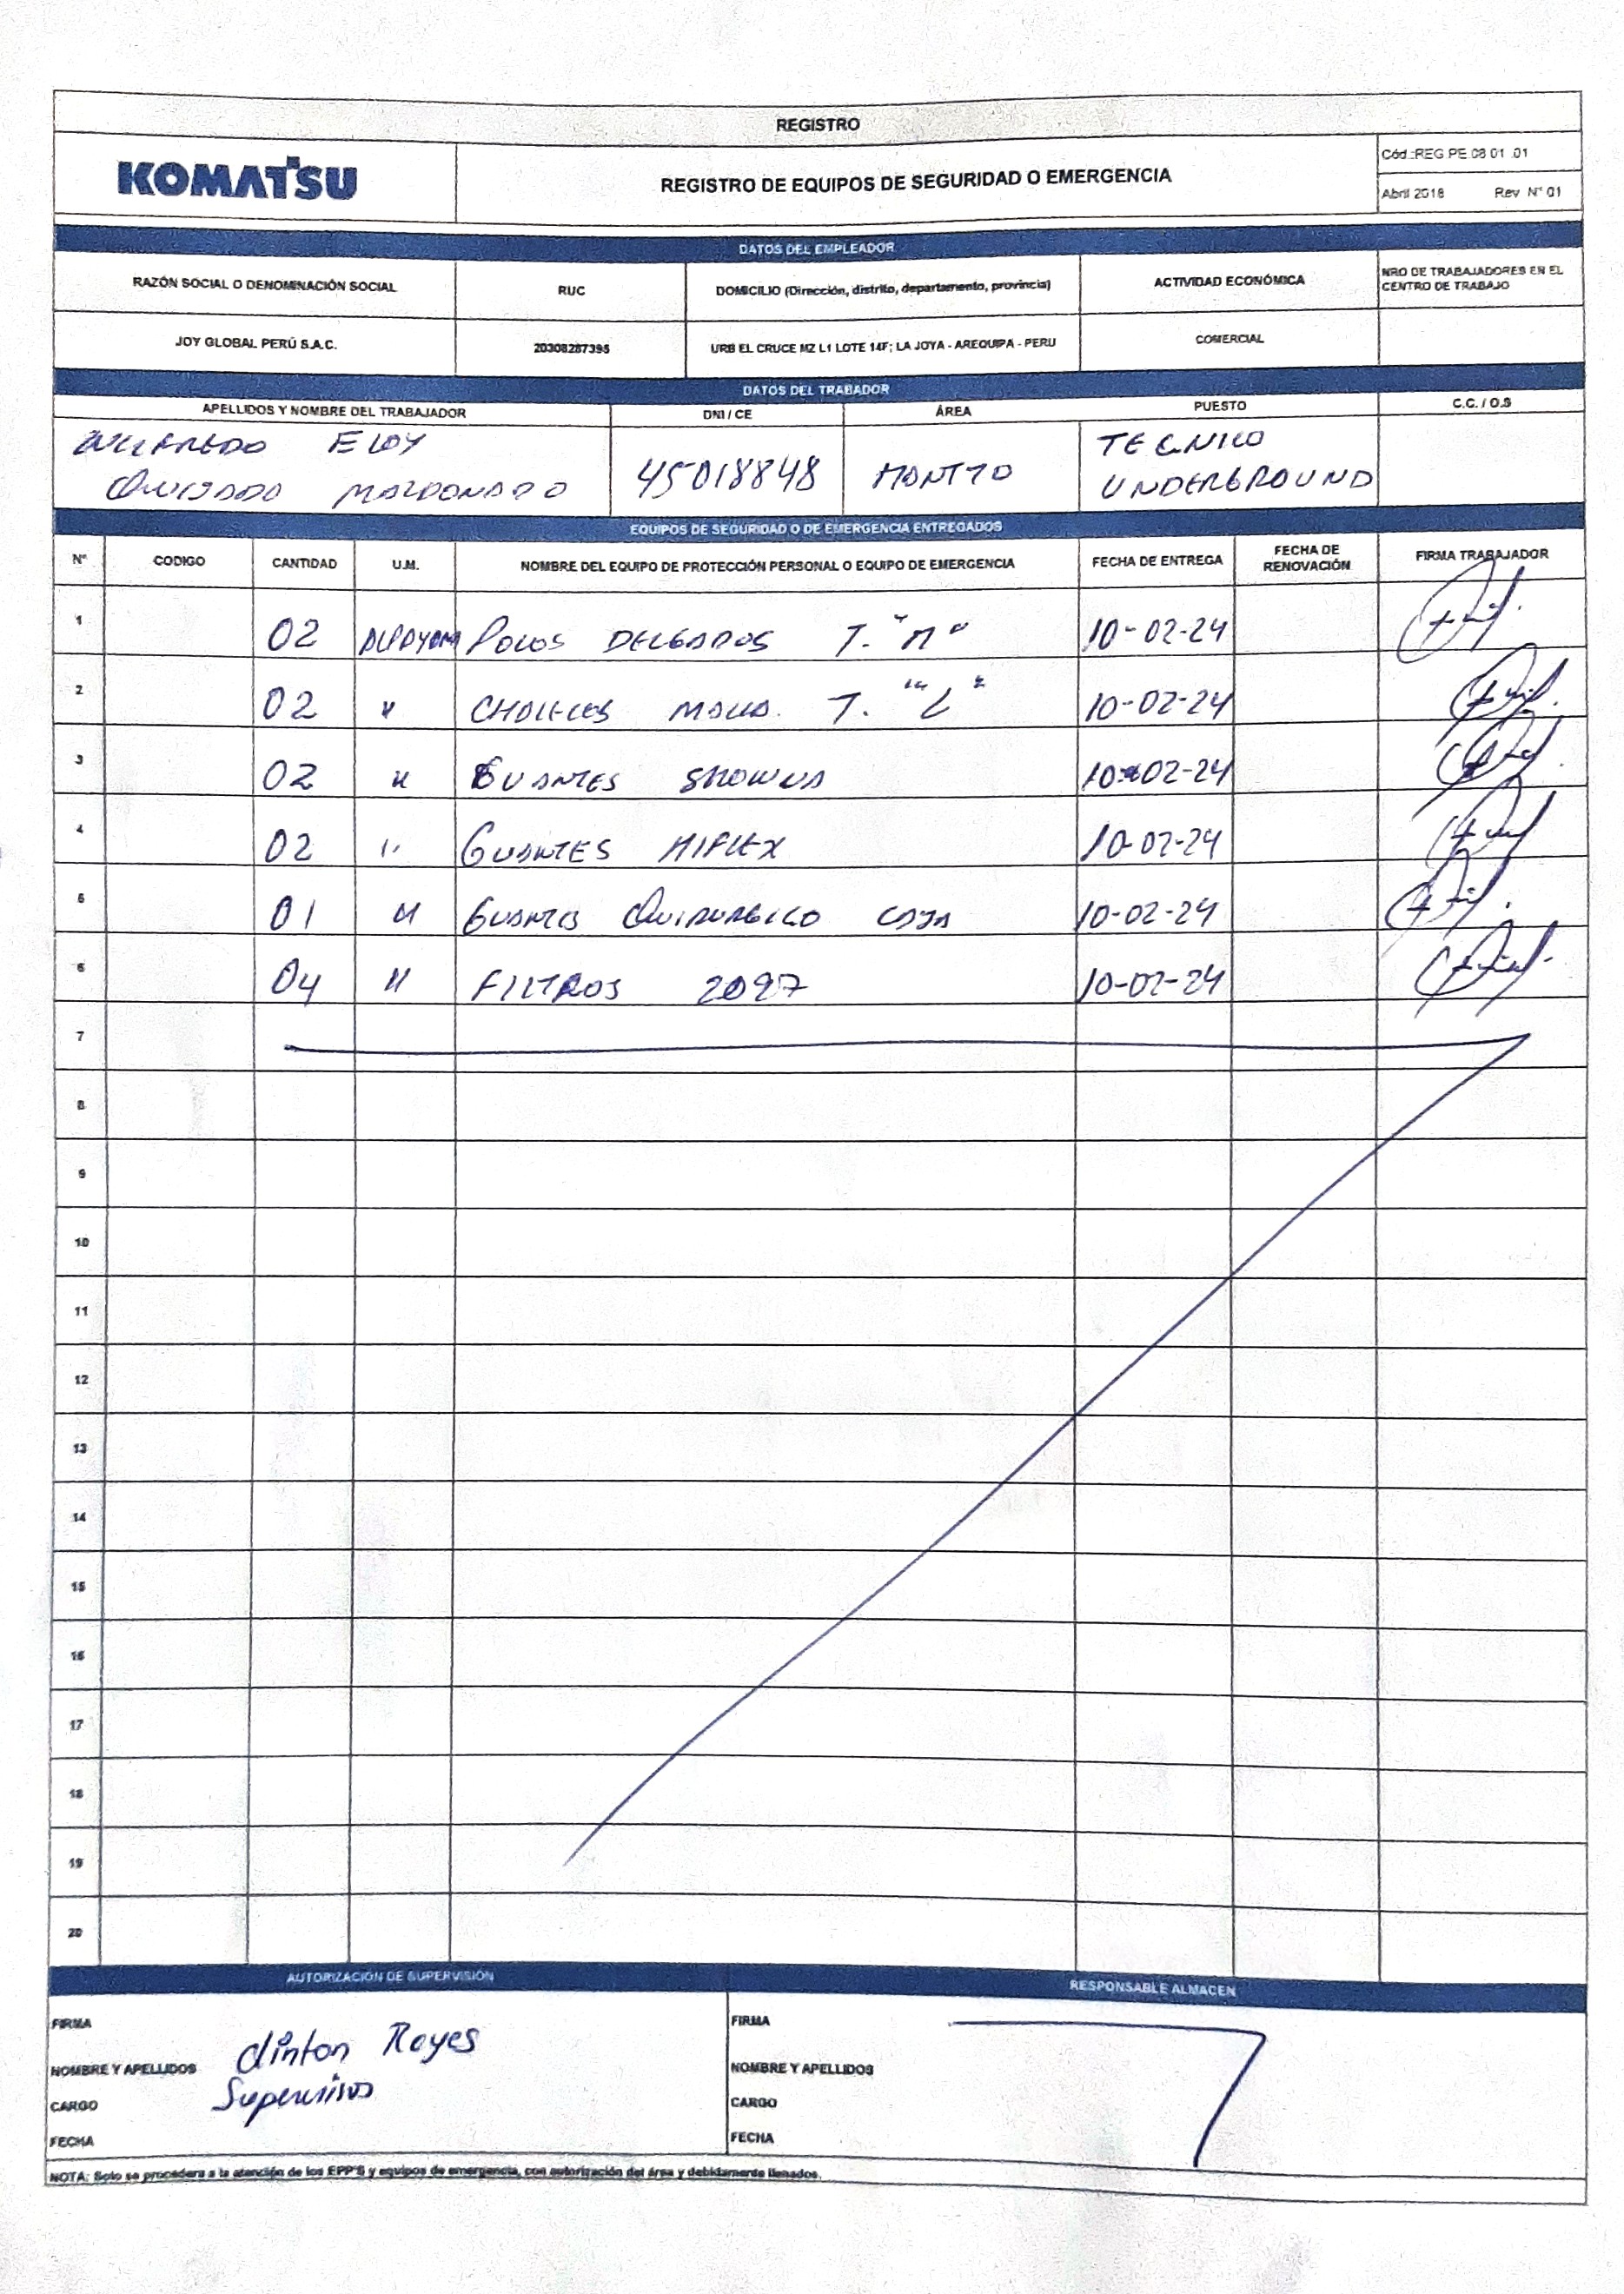 REGISTRO
KOMATSU
REGISTRO DE EQUIPOS DE SEGURIDAD O EMERGENCIA
Cód.:REG.PE.08.01 .01
Abril 2018 Rev. N° 01
DATOS DEL EMPLEADOR
RAZÓN SOCIAL O DENOMINACIÓN SOCIAL RUC DOMICILIO (Dirección, distrito, departamento, provincia) ACTIVIDAD ECONÓMICA NRO DE TRABAJADORES EN EL CENTRO DE TRABAJO
JOY GLOBAL PERÚ S.A.C. 20308287395 URB EL CRUCE MZ L1 LOTE 14F; LA JOYA - AREQUIPA - PERU COMERCIAL
DATOS DEL TRABADOR
APELLIDOS Y NOMBRE DEL TRABAJADOR DNI / CE ÁREA PUESTO C.C. / O.S
WILFREDO ELOY
QUIJADA MALDONADO 45018848 MANTTO TECNICO UNDERGROUND
EQUIPOS DE SEGURIDAD O DE EMERGENCIA ENTREGADOS
N° CODIGO CANTIDAD U.M. NOMBRE DEL EQUIPO DE PROTECCIÓN PERSONAL O EQUIPO DE EMERGENCIA FECHA DE ENTREGA FECHA DE RENOVACIÓN FIRMA TRABAJADOR
1 02 POLOS DELGADOS T. "M" 10-02-24
2 02 " CHALECOS MALLA. T. "L" 10-02-24
3 02 " GUANTES SHOWUA 10-02-24
4 02 " GUANTES HIFLEX 10-02-24
5 01 " GUANTES QUIRURGICO CAJA 10-02-24
6 04 " FILTROS 2097 10-02-24
7
8
9
10
11
12
13
14
15
16
17
18
19
20
AUTORIZACIÓN DE SUPERVISIÓN RESPONSABLE ALMACEN
FIRMA FIRMA
NOMBRE Y APELLIDOS Clinton Reyes NOMBRE Y APELLIDOS
CARGO Supervisor CARGO
FECHA FECHA
NOTA: Solo se procedera a la atención de los EPP'S y equipos de emergencia, con autorización del área y debidamente llenados.